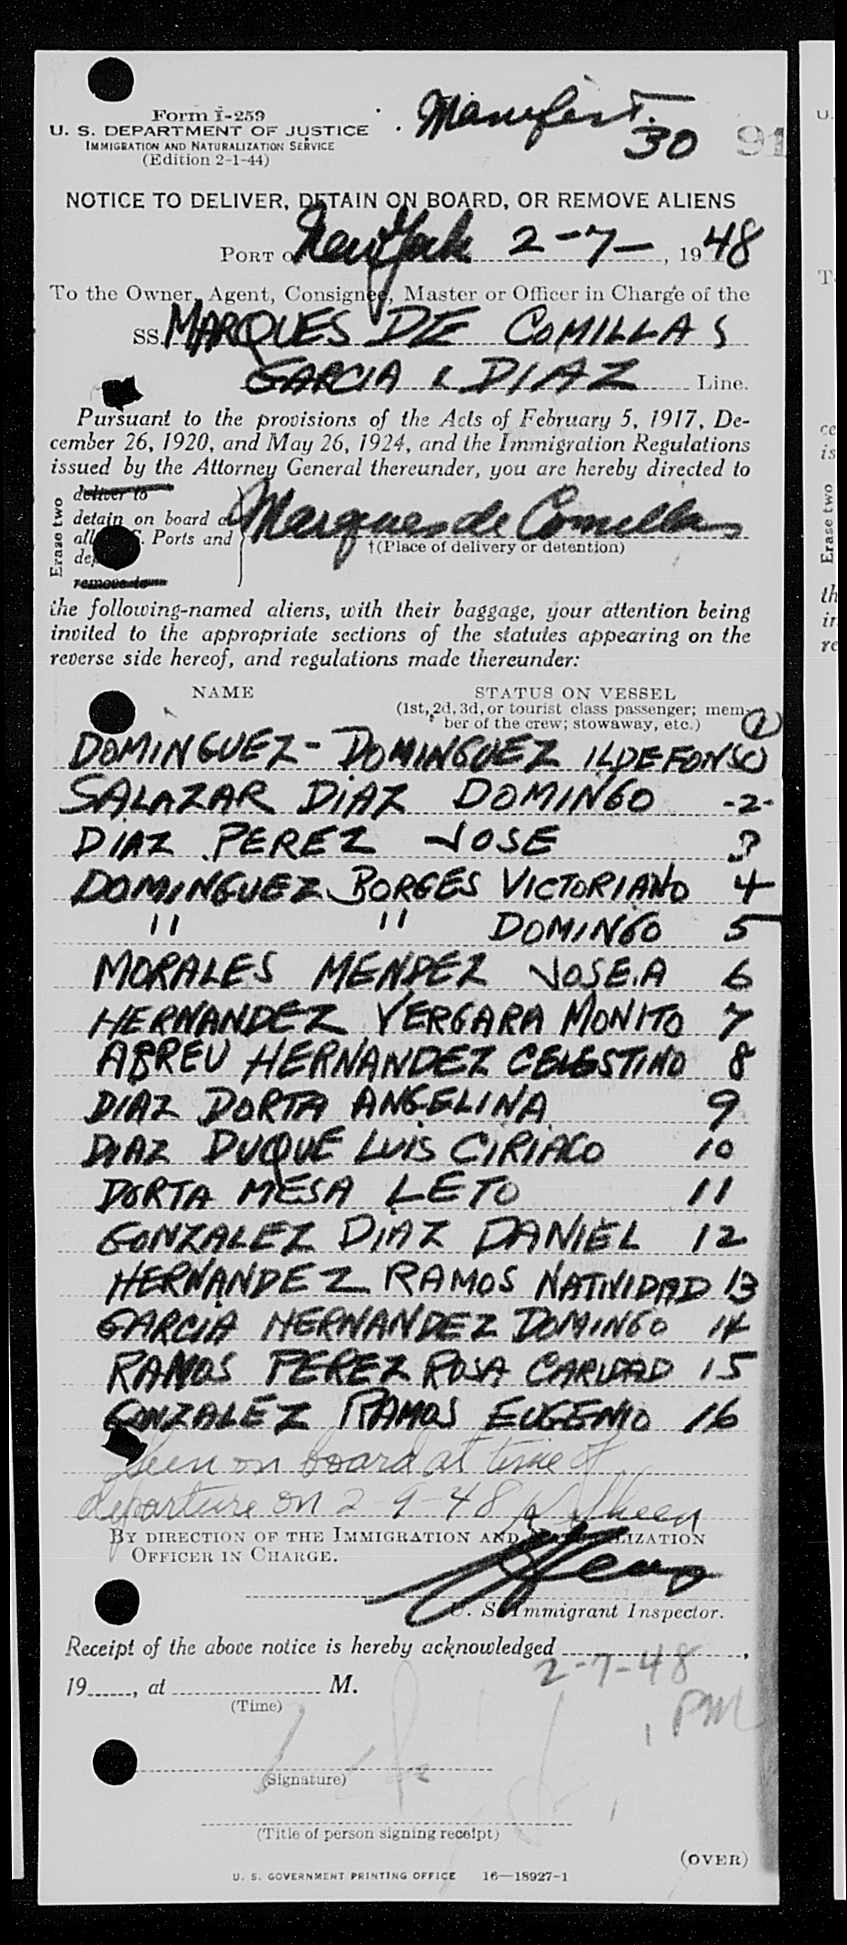 Form I-259
U. S. DEPARTMENT OF JUSTICE
IMMIGRATION AND NATURALIZATION SERVICE
(Edition 2-1-44)
Manifest.
30
91
NOTICE TO DELIVER, DETAIN ON BOARD, OR REMOVE ALIENS
PORT OF New York 2-7-, 1948
To the Owner, Agent, Consignee, Master or Officer in Charge of the
SS. MARQUES DE COMILLAS
GARCIA & DIAZ Line.
Pursuant to the provisions of the Acts of February 5, 1917, De-
cember 26, 1920, and May 26, 1924, and the Immigration Regulations
issued by the Attorney General thereunder, you are hereby directed to
Erase two
deliver to
detain on board at
all U.S. Ports and
remove to
Marques de Comillas
†(Place of delivery or detention)
the following-named aliens, with their baggage, your attention being
invited to the appropriate sections of the statutes appearing on the
reverse side hereof, and regulations made thereunder:
NAME STATUS ON VESSEL
(1st, 2d, 3d, or tourist class passenger; mem-
ber of the crew; stowaway, etc.)
DOMINGUEZ-DOMINGUEZ ILDEFONSO 1
SALAZAR DIAZ DOMINGO -2-
DIAZ PEREZ JOSE 3
DOMINGUEZ BORGES VICTORIANO 4
" " DOMINGO 5
MORALES MENDEZ JOSE.A 6
HERNANDEZ VERGARA MONITO 7
ABREU HERNANDEZ CELESTINO 8
DIAZ DORTA ANGELINA 9
DIAZ DUQUE LUIS CIRIACO 10
DORTA MESA LETO 11
GONZALEZ DIAZ DANIEL 12
HERNANDEZ RAMOS NATIVIDAD 13
GARCIA HERNANDEZ DOMINGO 14
RAMOS PEREZ ROSA CARIDAD 15
GONZALEZ RAMOS EUGENIO 16
Seen on board at time of
departure on 2-9-48
BY DIRECTION OF THE IMMIGRATION AND NATURALIZATION
OFFICER IN CHARGE.
U. S. Immigrant Inspector.
Receipt of the above notice is hereby acknowledged
2-7-48
19......, at M.
(Time)
1 PM
(Signature)
(Title of person signing receipt)
(OVER)
U. S. GOVERNMENT PRINTING OFFICE 16—18927-1